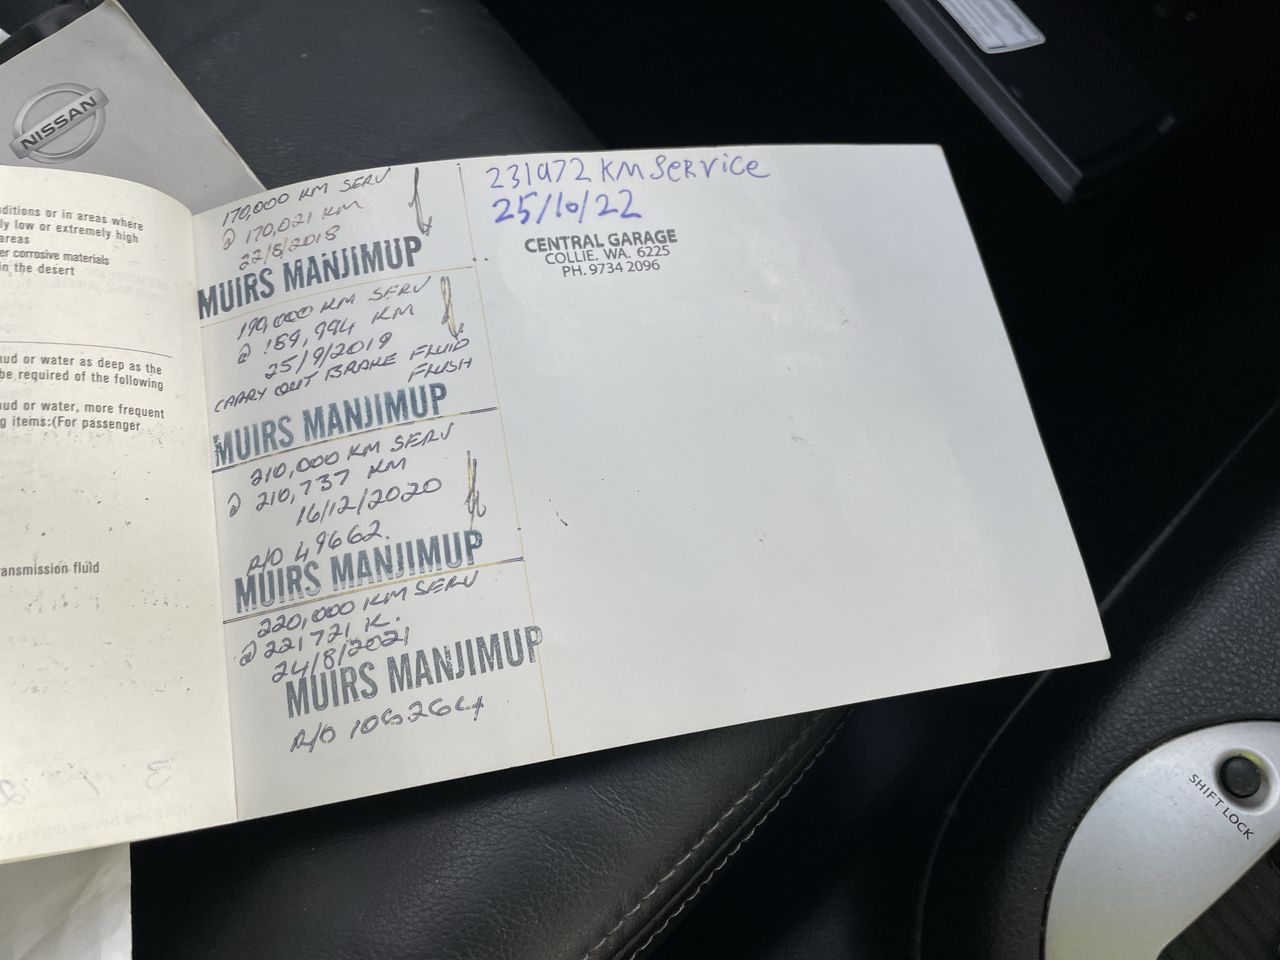 NISSAN
ditions or in areas where
ly low or extremely high
areas
er corrosive materials
in the desert
ud or water as deep as the
be required of the following
ud or water, more frequent
g items:(For passenger
ansmission fluid
170,000 KM SERV
@ 170,021 KM
22/8/2018
MUIRS MANJIMUP
190,000 KM SERV
@ 189,994 KM
25/9/2019
CARRY OUT BRAKE FLUID
FLUSH
MUIRS MANJIMUP
210,000 KM SERV
@ 210,737 KM
16/12/2020
R/O 49662.
MUIRS MANJIMUP
220,000 KM SERV
@ 221721 K.
24/8/2021
MUIRS MANJIMUP
R/O
231972 KM Service
25/10/22
CENTRAL GARAGE
COLLIE. WA. 6225
PH. 9734 2096
SHIFT LOCK